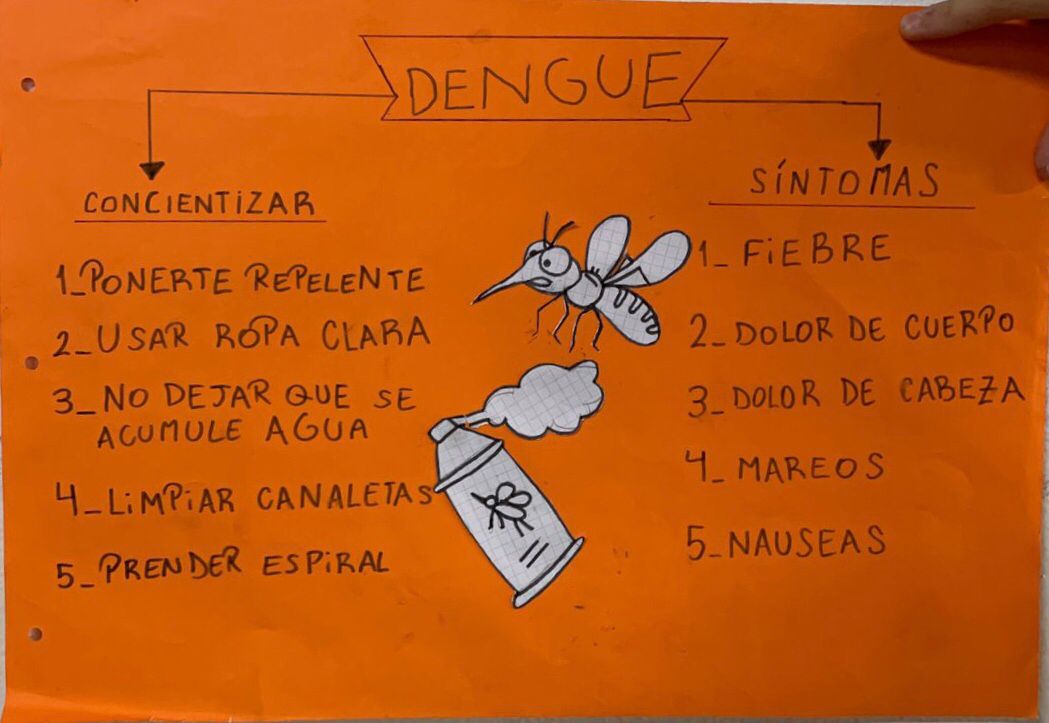 DENGUE
CONCIENTIZAR
1_PONERTE REPELENTE
2_USAR ROPA CLARA
3_NO DEJAR QUE SE
ACUMULE AGUA
4_LIMPIAR CANALETAS
5_PRENDER ESPIRAL
SÍNTOMAS
1_FIEBRE
2_DOLOR DE CUERPO
3_DOLOR DE CABEZA
4_MAREOS
5_NAUSEAS